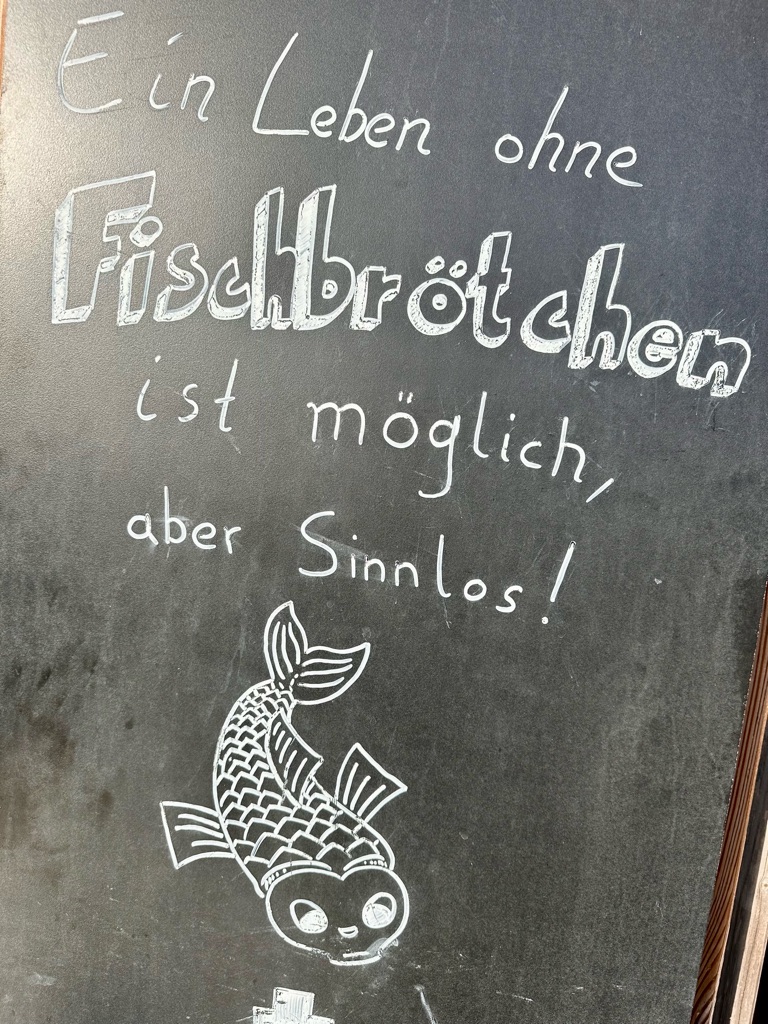 Ein Leben ohne
Fischbrötchen
ist möglich,
aber Sinnlos!